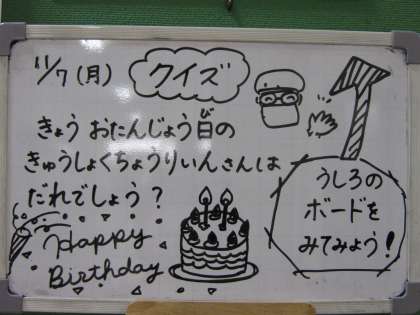 11/7(月)
クイズ
きょう おたんじょう日の
きゅうしょくちょうりいんさんは
だれでしょう?
Happy
Birthday
うしろの
ボードを
みてみよう!